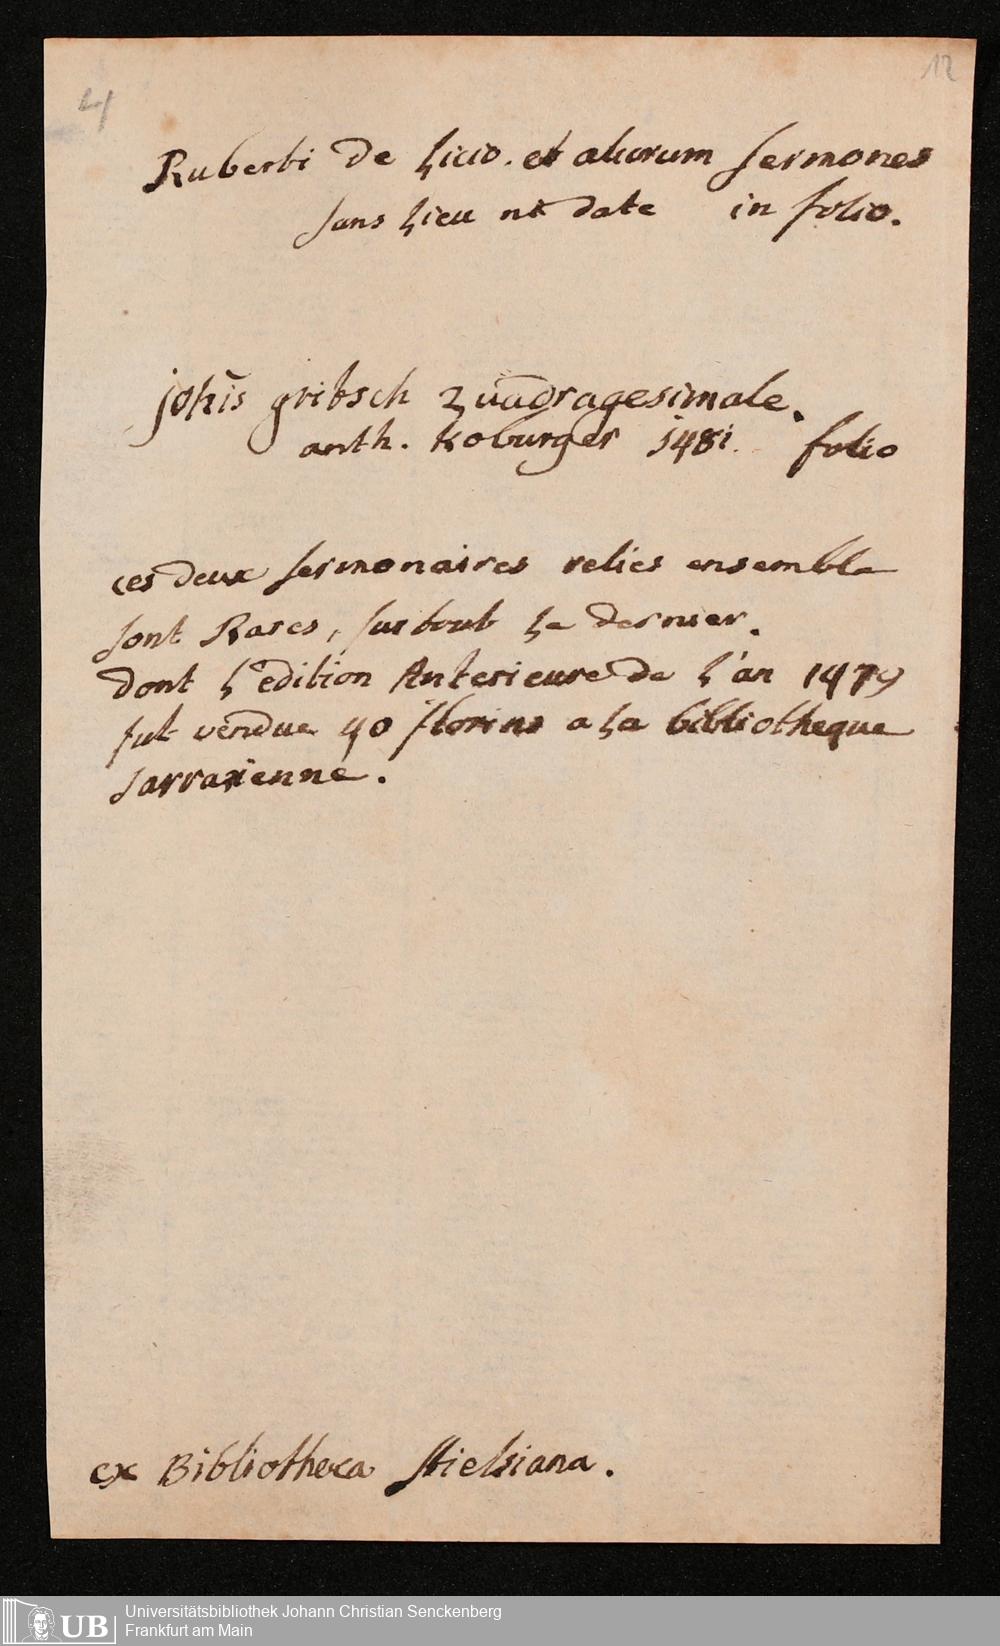 4
12
Ruberti de Licio. et aliorum sermones
sans Lieu ni date in folio.
johīs gritsch Quadragesimale.
anth. Koburger 1481. folio
ces deux sermonaires relies ensemble
sont Rares, surtout Le dernier.
dont L'edition Anterieure de L'an 1479
fut vendue 40 florins a La bibliotheque
sarrasienne.
ex Bibliotheca Stielsiana.
UB
Universitätsbibliothek Johann Christian Senckenberg
Frankfurt am Main